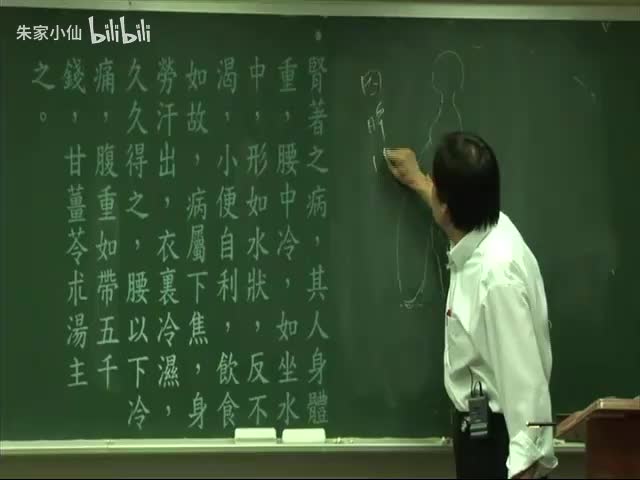 朱家小仙 bilibili
腎著之病，其人身體
重，腰中冷，如坐水
中，形如水狀，反不
渴，小便自利，飲食
如故，病屬下焦，身
勞汗出，衣裏冷濕，
久久得之，腰以下冷
痛，腹重如帶五千
錢，甘薑苓朮湯主
之。